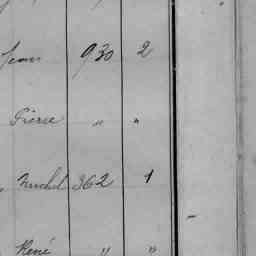 Jean 930 2
Pierre " "
Michel 362 1
René " "